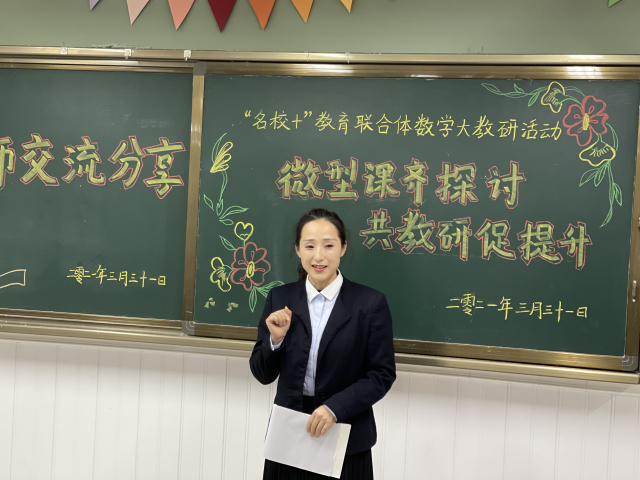 师交流分享
二零二一年三月三十一日
“名校+”教育联合体数学大教研活动
微型课齐探讨
共教研促提升
二零二一年三月三十一日